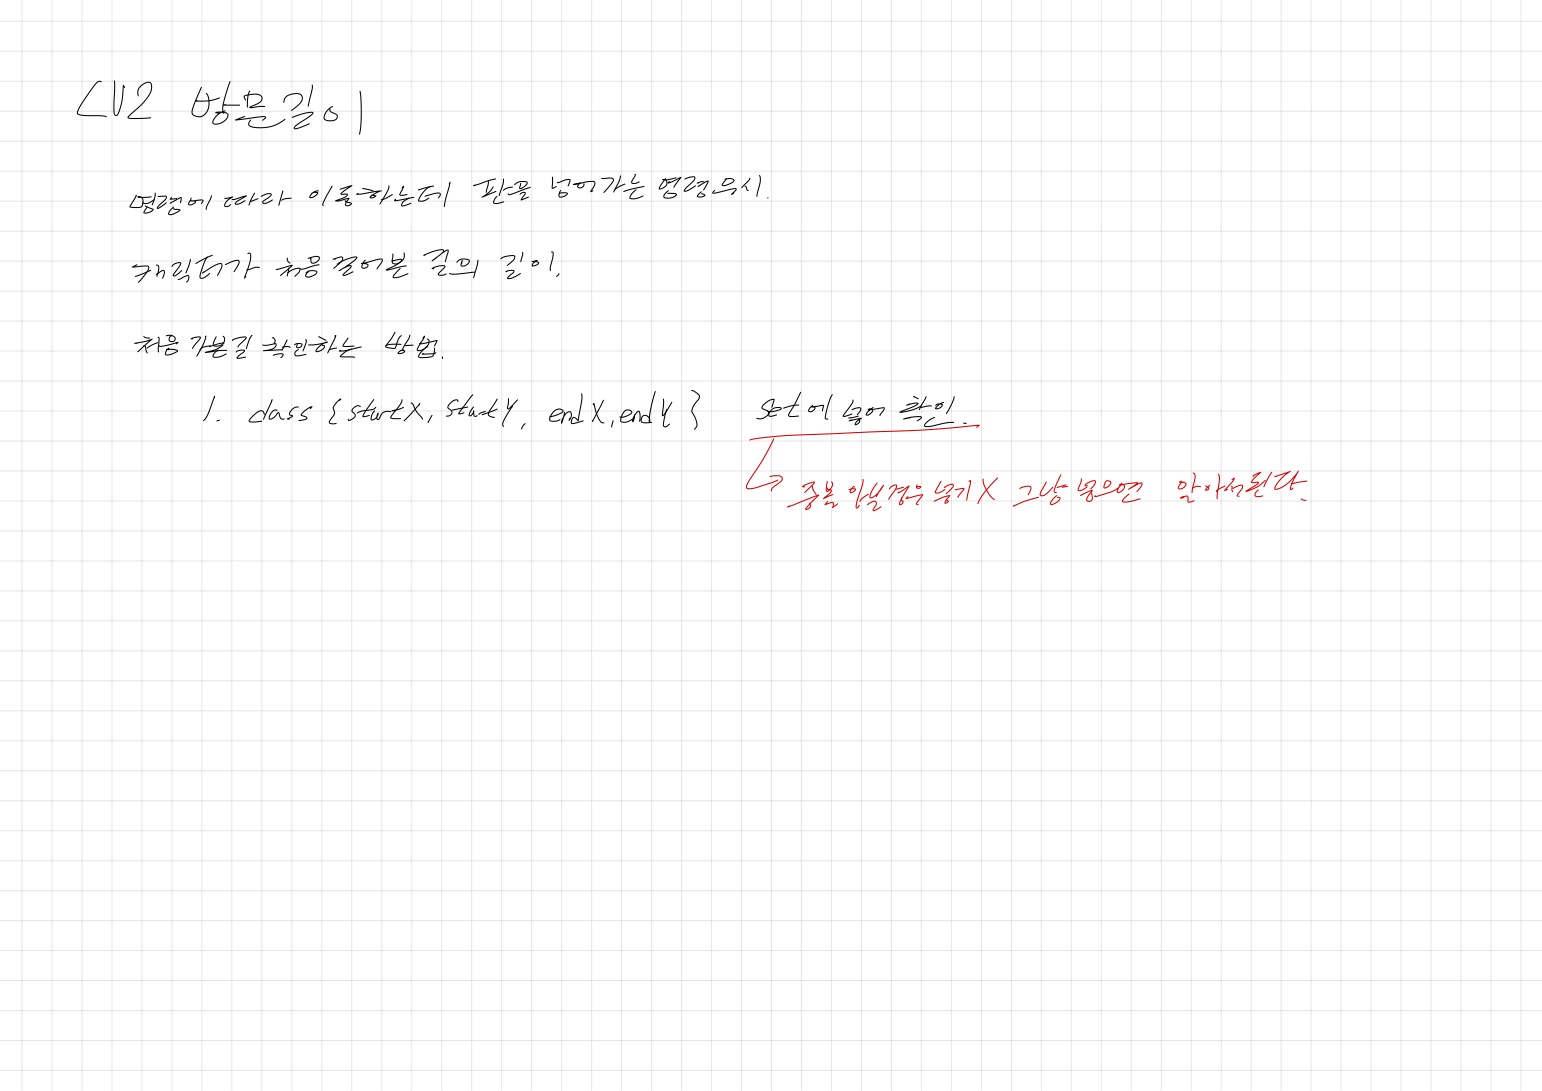 LV2 방문길이
명령에 따라 이동하는데 판을 넘어가는 명령무시.
캐릭터가 처음 걸어본 길의 길이.
처음 가본길 확인하는 방법.
1. class {startX, startY, endX, endY} set에 넣어 확인.
중복 아닐경우 넣기 X 그냥 넣으면 알아서된다.